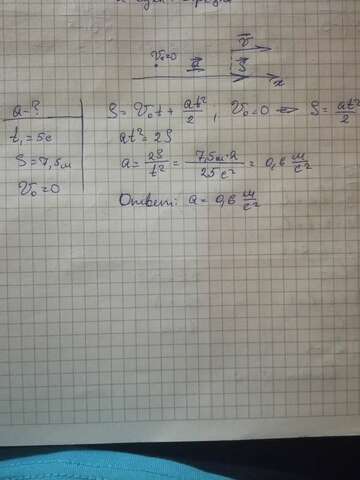 V₀=0 a⃗ S⃗ v⃗
x
a-?
t₁=5c
S=7,5м
V₀=0
S = V₀t + at²/2; V₀=0 => S = at²/2
at² = 2S
a = 2S/t² = 7,5м·2/25c² = 0,6 м/c²
Ответ: a = 0,6 м/c²